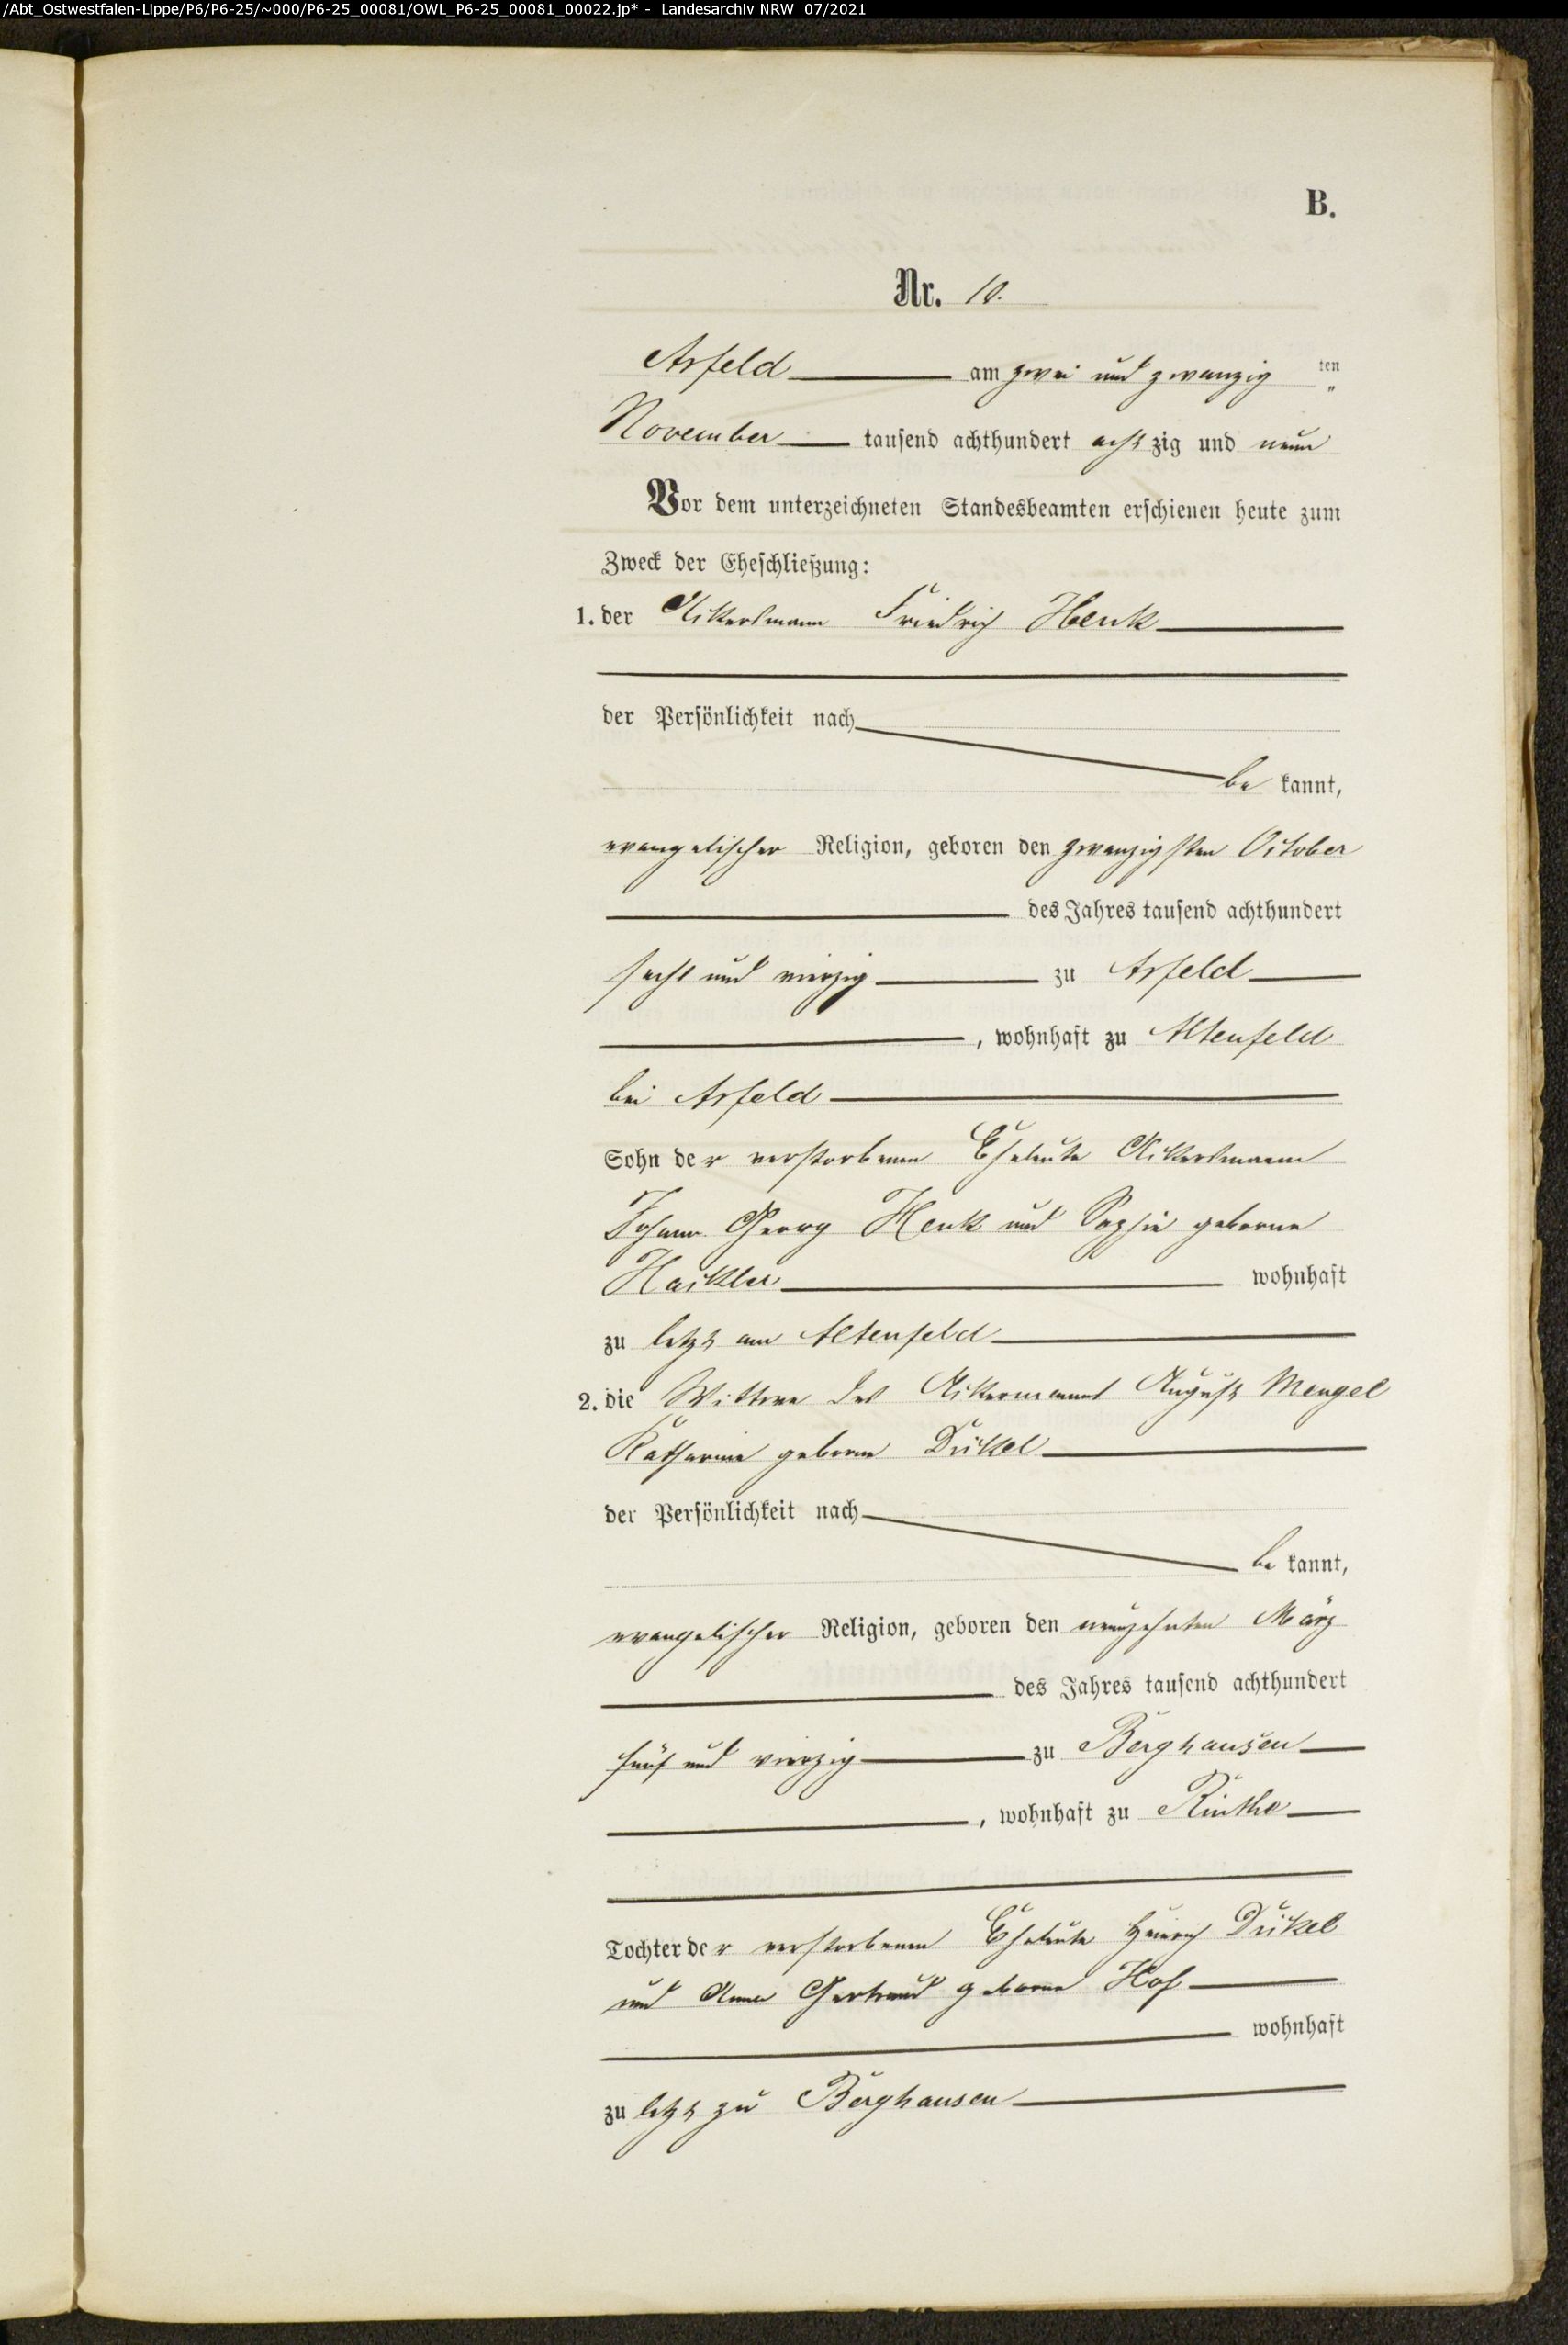 /Abt_Ostwestfalen-Lippe/P6/P6-25/~000/P6-25_00081/OWL_P6-25_00081_00022.jp* - Landesarchiv NRW 07/2021
B.
Nr. 10.
Arfeld am zwei und zwanzig ten
November tausend achthundert acht zig und neun
Vor dem unterzeichneten Standesbeamten erschienen heute zum
Zweck der Eheschließung:
1. der Ackersmann Friedrich Henk
der Persönlichkeit nach
be kannt,
evangelischer Religion, geboren den zwanzigsten October
des Jahres tausend achthundert
sechs und vierzig zu Arfeld
, wohnhaft zu Altenfeld
bei Arfeld
Sohn der verstorbenen Eheleute Ackersmann
Johann Georg Henk und Sophie geborne
Hackler wohnhaft
zu letzt am Altenfeld
2. die Wittwe des Ackermanns August Mengel
Katharine geborne Dickel
der Persönlichkeit nach
be kannt,
evangelischer Religion, geboren den neunzehnten März
des Jahres tausend achthundert
fünf und vierzig zu Berghausen
, wohnhaft zu Rinthe
Tochter der verstorbenen Eheleute Heinrich Dickel
und Anna Gertraud geborne Hof
wohnhaft
zu letzt zu Berghausen